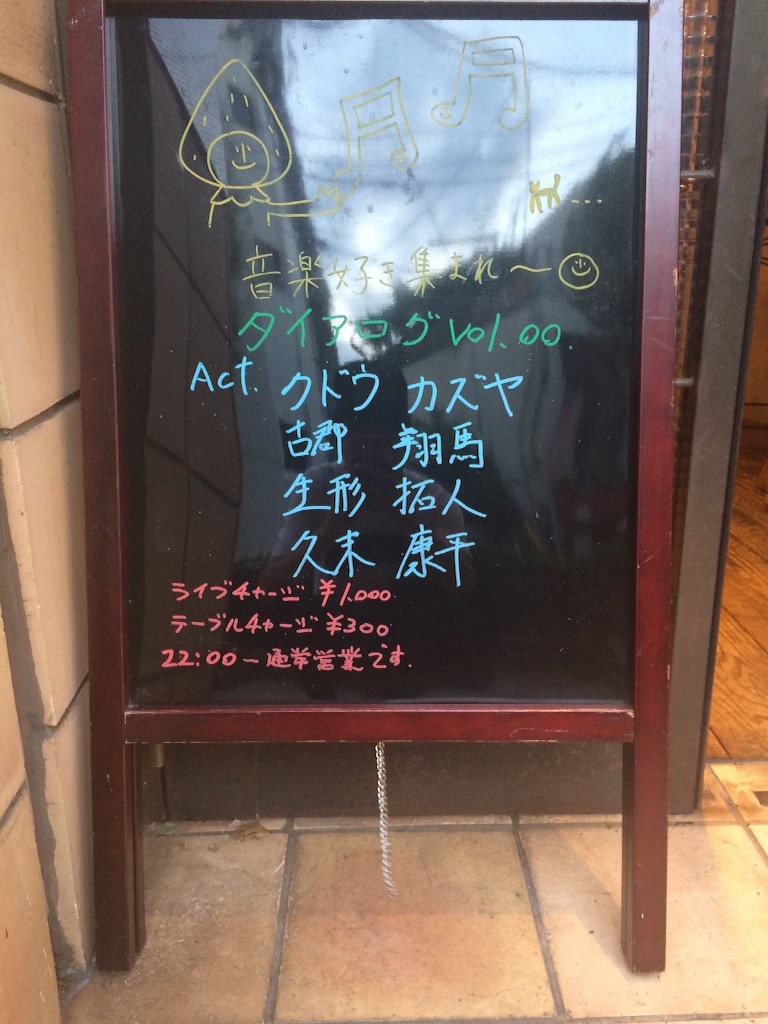 音楽好き集まれ〜
ダイアログ Vol.00.
Act. クドウ カズヤ
古郡 翔馬
生形 拓人
久末 康平
ライブチャージ ¥1,000
テーブルチャージ ¥300
22:00〜通常営業です.